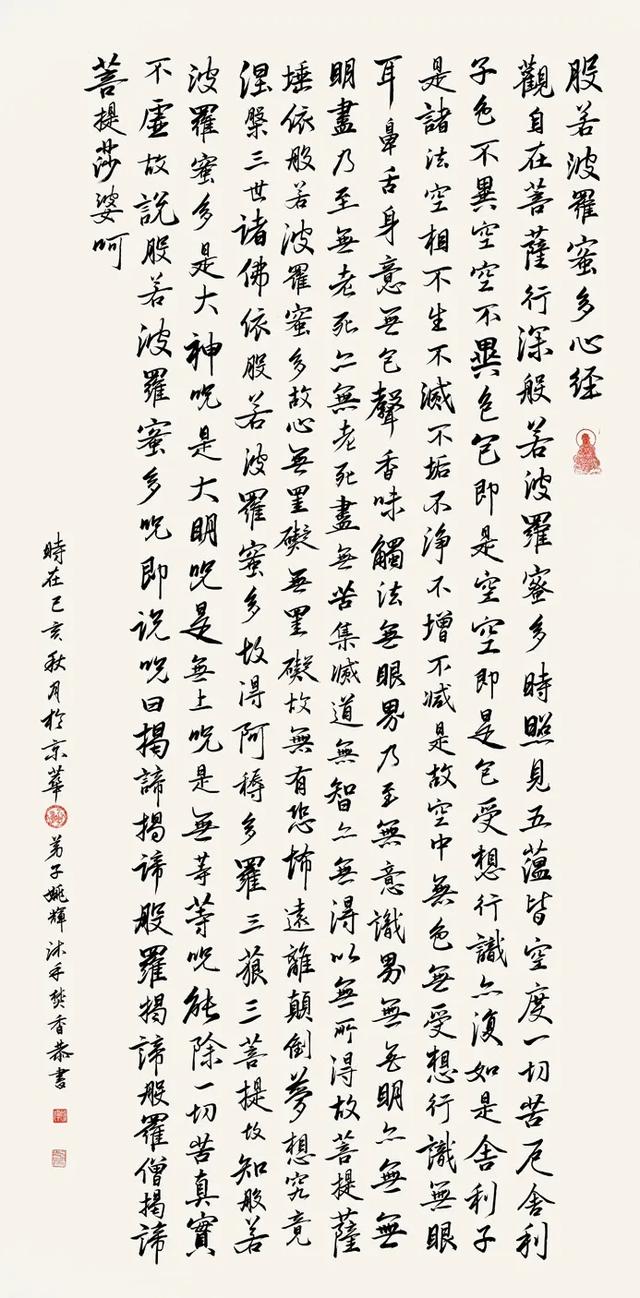 般若波羅蜜多心經
觀自在菩薩行深般若波羅蜜多時照見五蘊皆空度一切苦厄舍利
子色不異空空不異色色即是空空即是色受想行識亦復如是舍利子
是諸法空相不生不滅不垢不淨不增不減是故空中無色無受想行識無眼
耳鼻舌身意無色聲香味觸法無眼界乃至無意識界無無明亦無無
明盡乃至無老死亦無老死盡無苦集滅道無智亦無得以無所得故菩提薩
埵依般若波羅蜜多故心無罣礙無罣礙故無有恐怖遠離顛倒夢想究竟
涅槃三世諸佛依般若波羅蜜多故得阿耨多羅三藐三菩提故知般若
波羅蜜多是大神呪是大明呪是無上呪是無等等呪能除一切苦真實
不虛故說般若波羅蜜多呪即說呪曰揭諦揭諦般羅揭諦般羅僧揭諦
菩提莎婆呵
時在己亥秋月於京華弟子姚輝沐手焚香恭書